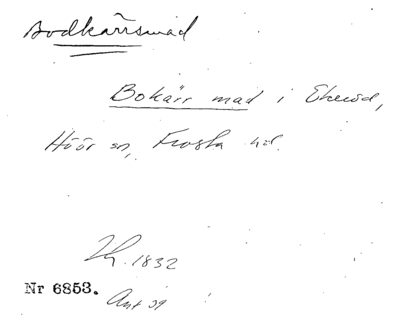 Bodkärrsmad
Bokärr mad i Ekeröd,
Höör sn, Frosta hd.
1832
Nr 6853.
Ant 39